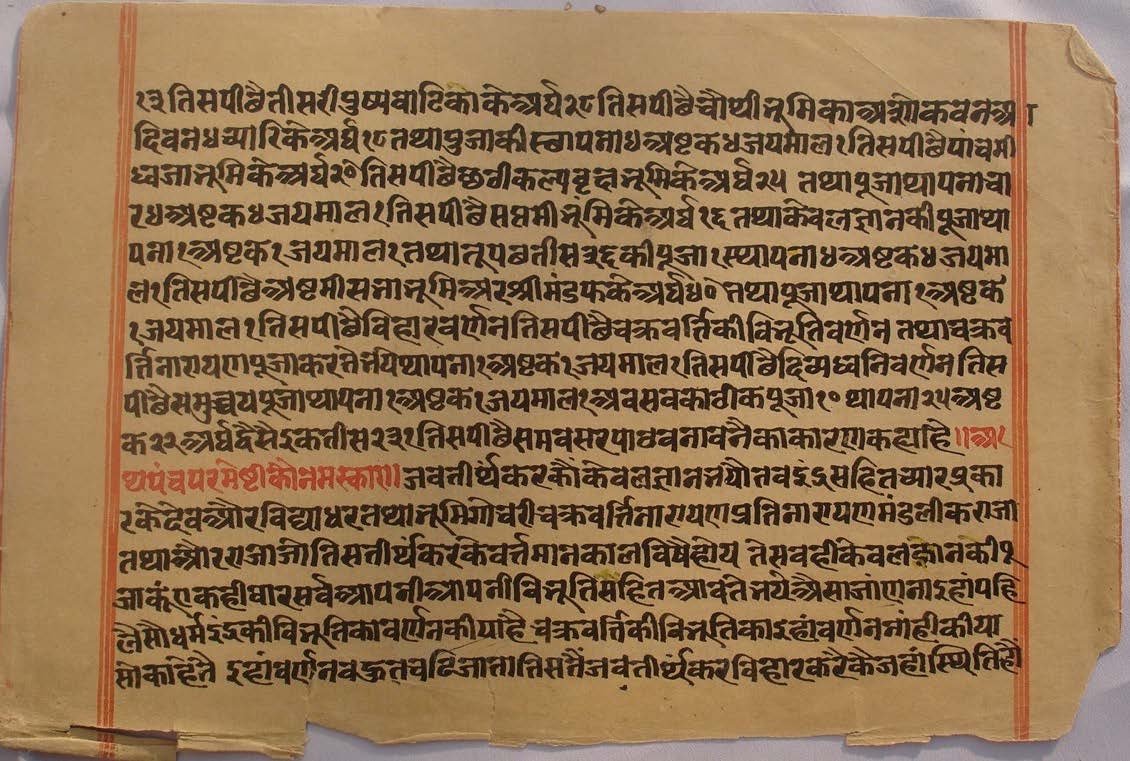 १३ तिसपीछै तीसरी पुष्पवाटिका के अर्घ २८ तिसपीछै चौथी भूमिका अशोकवन आ
दिवन ४ च्यारि के अर्घ १८ तथा पुजा की स्थापना ४ अष्टक ४ जयमाल १ तिसपीछै पांचमी
ध्वजाभूमि के अर्घ २० तिसपीछै छठी कल्पवृक्षभूमि के अर्घ २५ तथा पूजा थापना चा
र ४ अष्टक ४ जयमाल १ तिसपीछै सप्तमी भूमि के अर्घ १६ तथा केवलज्ञान की पूजा था
पना १ अष्टक १ जयमाल १ तथा तूप छतीस ३६ की पूजा १ स्थापना ४ अष्टक ४ जयमा
ल १ तिसपीछै अष्टमी सभाभूमि अर श्रीमंडफ के अर्घ ४० तथा पूजा थापना १ अष्टक
१ जयमाल १ तिसपीछै विहारवर्णन तिसपीछै चक्रवर्त्ति की विभूति वर्णन तथा चक्रव
र्त्ति नारायण पुजा करते भये थापना १ अष्टक १ जयमाल १ तिसपीछै दिव्यध्वनि वर्णन तिस
पीछै समुच्चय पूजा थापना १ अष्टक १ जयमाल १ अब सब का ठीक पूजा १० थापना २५ अष्ट
क २२ अर्घ द्वैसै इकतीस २३१ तिसपीछै समवसरपाठ बनावनै का कारण कहा है ॥ अ
थ पंचपरमेष्टी कौ नमस्कार ॥ जब तीर्थंकर कौं केवलज्ञान भयौ तब इंद्र सहित च्यार प्रका
र के देव और विद्याधर तथा भूमिगोचरी चक्रवर्त्ति नारायण प्रतिनारायण मंडलीक राजा
तथा और राजा जो तिस तीर्थंकर के वर्त्तमानकाल विषै होय ते सब ही केवलज्ञान की पू
जा कै कही धार सर्व आपनी आपनी विभूति सहित आवते भये औसा जांणना इहां पहि
लै सौधर्म इंद्र की विभूति का वर्णन कीया है चक्रवर्त्ति की विभूति का इहां वर्णन नांही कीया
सो काहे तै इहां वर्णन बहुत बढि जाता तिसतै जब तीर्थंकर विहार करै कै जहां स्थिति हौ